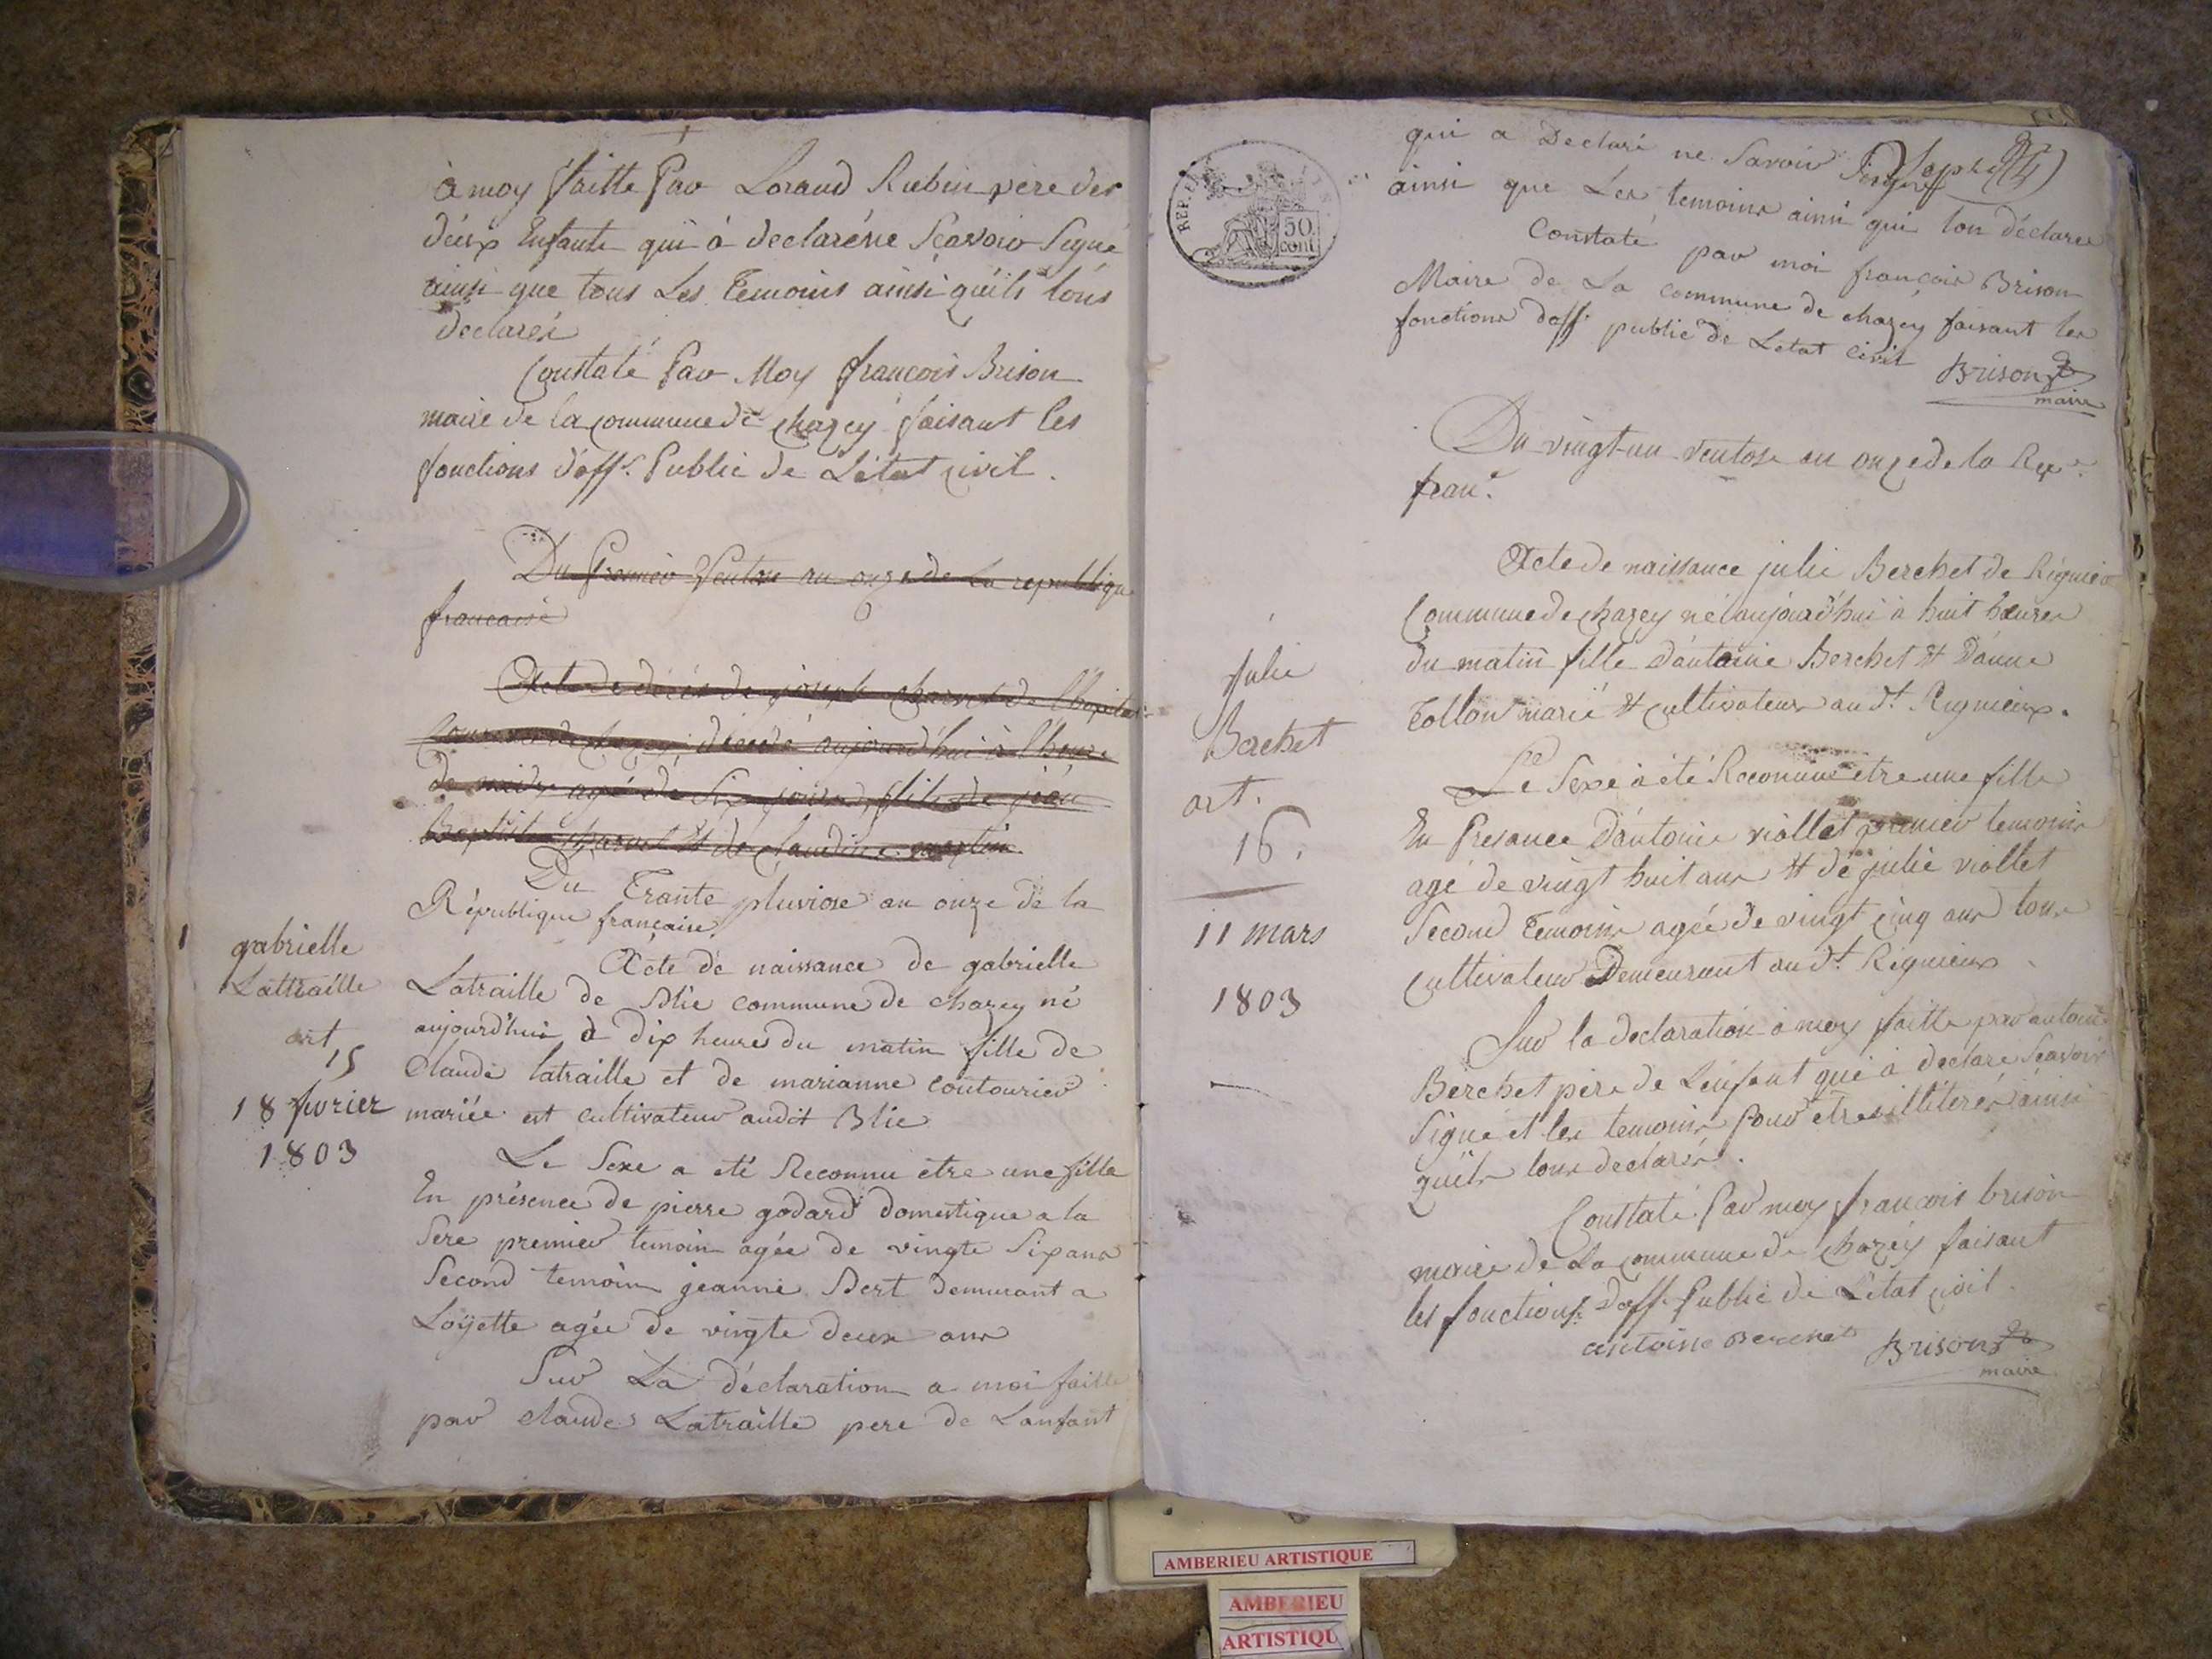 à moy faitte Par Loraud Rubin père des
deux Enfants qui à declaré ne Sçavoir Signé
ainsi que tous Les Temoins ainsi qu'ils lons
declarés
Constaté Par Moy françois Brison
maire de la commune de chazey faisant les
fonctions d'off.r Public de L'état civil.
Du Premier Ventose an onze de La republique
francaise
Acte de décès de joseph charvet de l'hopital
Commune de chazey, décédé aujourd'hui à l'heure
de midy agé de Six jours, fils de jean
Baptiste charvet et de claudine
Du Trante pluviose an onze de la
République française.
gabrielle
Lattraille
art
15
18 fvrier
1803
Acte de naissance de gabrielle
Latraille de Blie commune de chazey né
aujourd'hui à dix heures du matin fille de
Claude latraille et de marianne coutourier
mariée et cultivateur audit Blie
Le Sexe a eté Reconnu etre une fille
En présence de pierre godard domestique a la
Sere premier temoin agée de vingte Six ans
Second temoin jeanne Bert demeurant a
Loyette agée de vingte deux ans
Sur La déclaration a moi faitte
par claude Latraille pere de Lanfant
REP. FRA
50
cent
qui a Declaré ne Savoir Signé
ainsi que Les temoins ainsi qui lon déclarée
Constaté par moi françois Brison
Maire de La commune de chazey faisant les
fonctions doff. public de Letat Civil
Brison
maire
Du vingt-un ventose an onze de la Rep.e
fran.e
julie
Berchet
art.
16.
11 mars
1803
Acte de naissance julie Berchet de Rignieu
Commune de chazey né aujourd'hui à huit heures
du matin fille d'antoine Berchet et d'anne
Tollon marié et cultivateur au d.t Rignieux.
Le Sexe à été Reconnu etre une fille
En Presance d'antoine viollet premier temoins
agé de vingt huit ans et de julie viollet
Second Temoins agée de vingt cinq ans tous
cultivateur Demeurant au d.t Rignieux
Sur la declaration à moy faitte par antoine
Berchet père de Lenfant qui à declaré Sçavoir
Signé et les temoins pour etre illiterés ainsi
qu'ils lons declarés.
Constaté Par moy françois brison
maire de La commune de chazey faisant
les fonctions d'off. Public de L'état civil.
antoine Berchet
Brison
maire
AMBERIEU ARTISTIQUE
AMBERIEU
ARTISTIQU